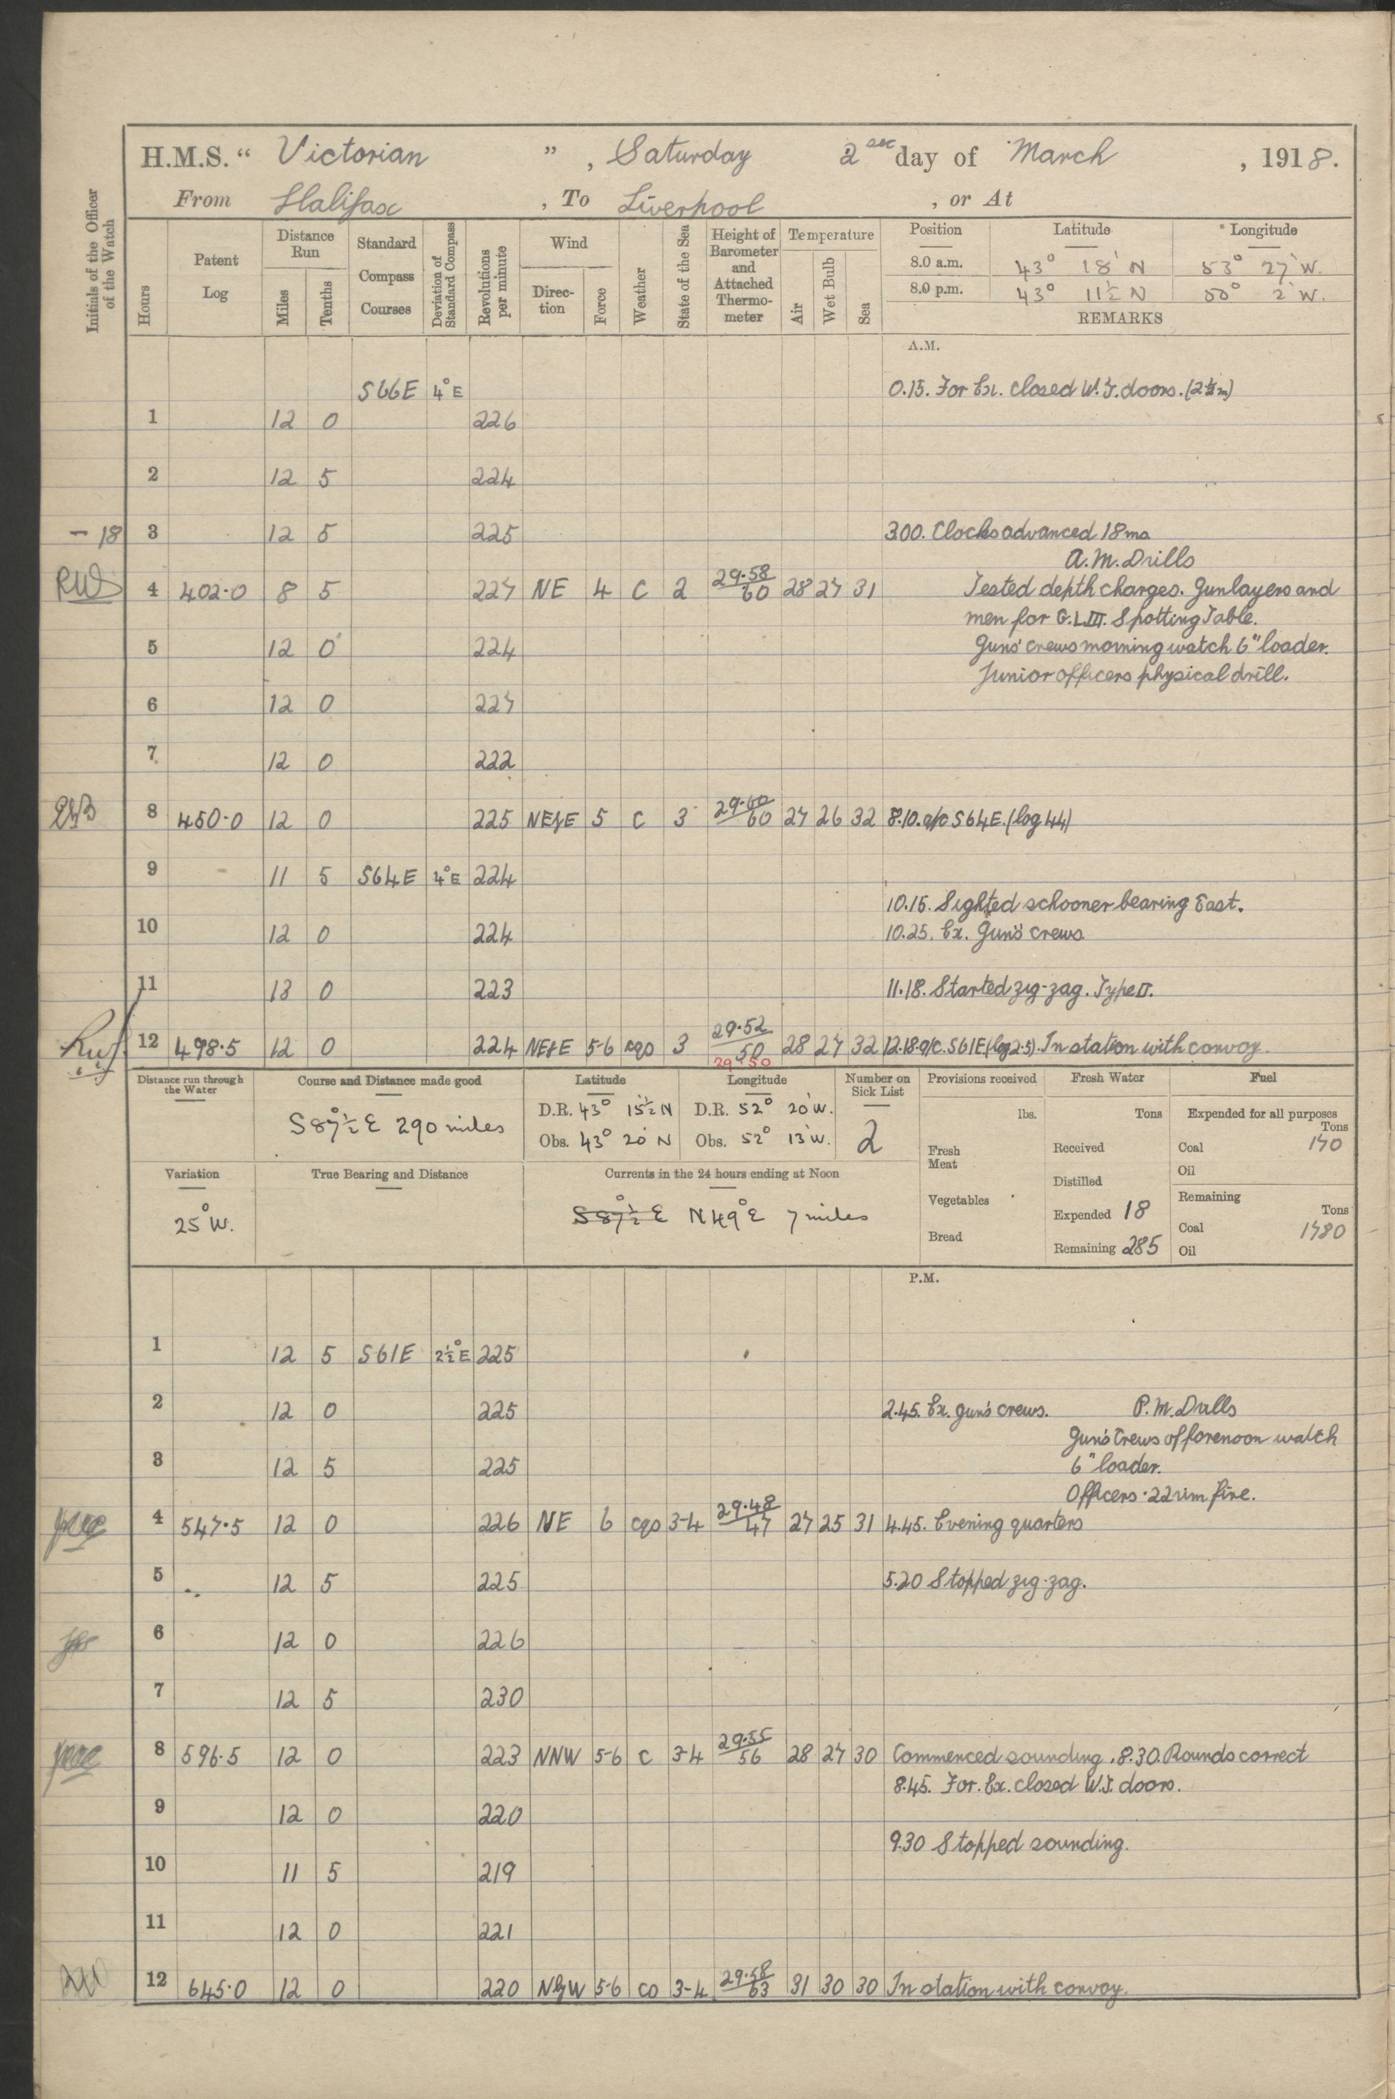 H.M.S. " Victorian " , Saturday 2nd day of March , 1918.
From Halifax , To Liverpool , or At
Initials of the Officer of the Watch
Hours
Patent Log
Distance Run
Miles
Tenths
Standard Compass Courses
Deviation of Standard Compass
Revolutions per minute
Wind
Direction
Force
Weather
State of the Sea
Height of Barometer and Attached Thermometer
Temperature
Air
Wet Bulb
Sea
Position Latitude Longitude
8.0 a.m. 43° 18' N 53° 27' W.
8.0 p.m. 43° 11½ N 50° 2' W.
REMARKS
A.M.
S66E 4°E 0.15. For Ex. closed W.T. doors. (2½m)
1 12 0 226
2 12 5 224
– 18 3 12 5 225 3.00. Clocks advanced 18ms
A.M. Drills
4 402·0 8 5 227 NE 4 C 2 29·58 60 28 27 31 Tested depth charges. Gunlayers and
men for G.L.III. Spotting Table.
5 12 0 224 Guns' crews morning watch 6" loader.
Junior officers physical drill.
6 12 0 227
7 12 0 222
8 450·0 12 0 225 NE½E 5 C 3 29·60 60 27 26 32 8.10. a/c S64E. (log 44)
9 11 5 S64E 4°E 224
10.15. Sighted schooner bearing East.
10 12 0 224 10.25. Ex. Gun's crews
11 13 0 223 11.18. Started zig-zag. Type II.
12 498·5 12 0 224 NE½E 5·6 cqs 3 29·52 50 28 27 32 12.18. a/c. S61E (log 2.5). In station with convoy.
29·50
Distance run through the Water
Course and Distance made good
S87½E 290 miles
Latitude
D.R. 43° 15½ N
Obs. 43° 20' N
Longitude
D.R. 52° 20' W.
Obs. 52° 13' W.
Number on Sick List
2
Provisions received
lbs.
Fresh Meat
Vegetables
Bread
Fresh Water
Tons
Received
Distilled
Expended 18
Remaining 285
Fuel
Expended for all purposes
Tons
Coal 170
Oil
Remaining
Tons
Coal 1780
Oil
Variation
25° W.
True Bearing and Distance
Currents in the 24 hours ending at Noon
S87½°E N49°E 7 miles
P.M.
1 12 5 S61E 2½°E 225
2 12 0 225 2.45. Ex. gun's crews. P.M. Drills
Gun's Crews of forenoon watch
3 12 5 225 6" loader.
Officers ·22 rim fire.
4 547·5 12 0 226 NE 6 cqs 3-4 29·48 47 27 25 31 4.45. Evening quarters
5 12 5 225 5.20 Stopped zig-zag.
6 12 0 226
7 12 5 230
8 596·5 12 0 223 NNW 5-6 C 3-4 29·55 56 28 27 30 Commenced sounding. 8.30. Rounds correct
8.45. For. Ex. closed W.T. doors.
9 12 0 220
9.30 Stopped sounding.
10 11 5 219
11 12 0 221
12 645·0 12 0 220 NbyW 5-6 co 3-4 29·58 63 31 30 30 In station with convoy.